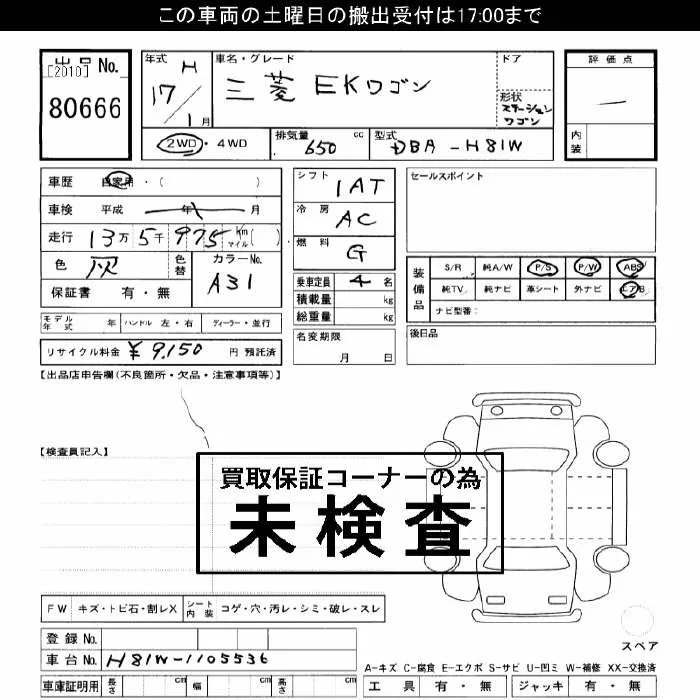 この車両の土曜日の搬出受付は17:00まで
出品 No.
[2010]
80666
年式 H 17/1月
車名・グレード 三菱 EKワゴン
ドア
形状 ステーションワゴン
評価点
内装
2WD・4WD
排気量 650 cc
型式 DBA-H81W
車歴 自家用・( )
車検 平成 年 月
走行 13万5千975 km マイル( )
色 灰
色替
カラーNo. A31
保証書 有・無
シフト 1AT
冷房 AC
燃料 G
乗車定員 4 名
積載量 kg
総重量 kg
セールスポイント
装備品
S/R 純A/W P/S P/W ABS
純TV 純ナビ 革シート 外ナビ エアB
ナビ型番:
モデル年式 年 ハンドル 左・右 ディーラー・並行
リサイクル料金 ¥9,150 円 預託済
名変期限 月 日
後日品
【出品店申告欄(不良箇所・欠品・注意事項等)】
【検査員記入】
買取保証コーナーの為
未検査
FW キズ・トビ石・割レX
シート内装 コゲ・穴・汚レ・シミ・破レ・スレ
登録 No.
車台 No. H81W-1105536
車庫証明用 長さ cm 幅 cm 高さ cm
スペア
A-キズ C-腐食 E-エクボ S-サビ U-凹ミ W-補修 XX-交換済
工具 有・無 ジャッキ 有・無